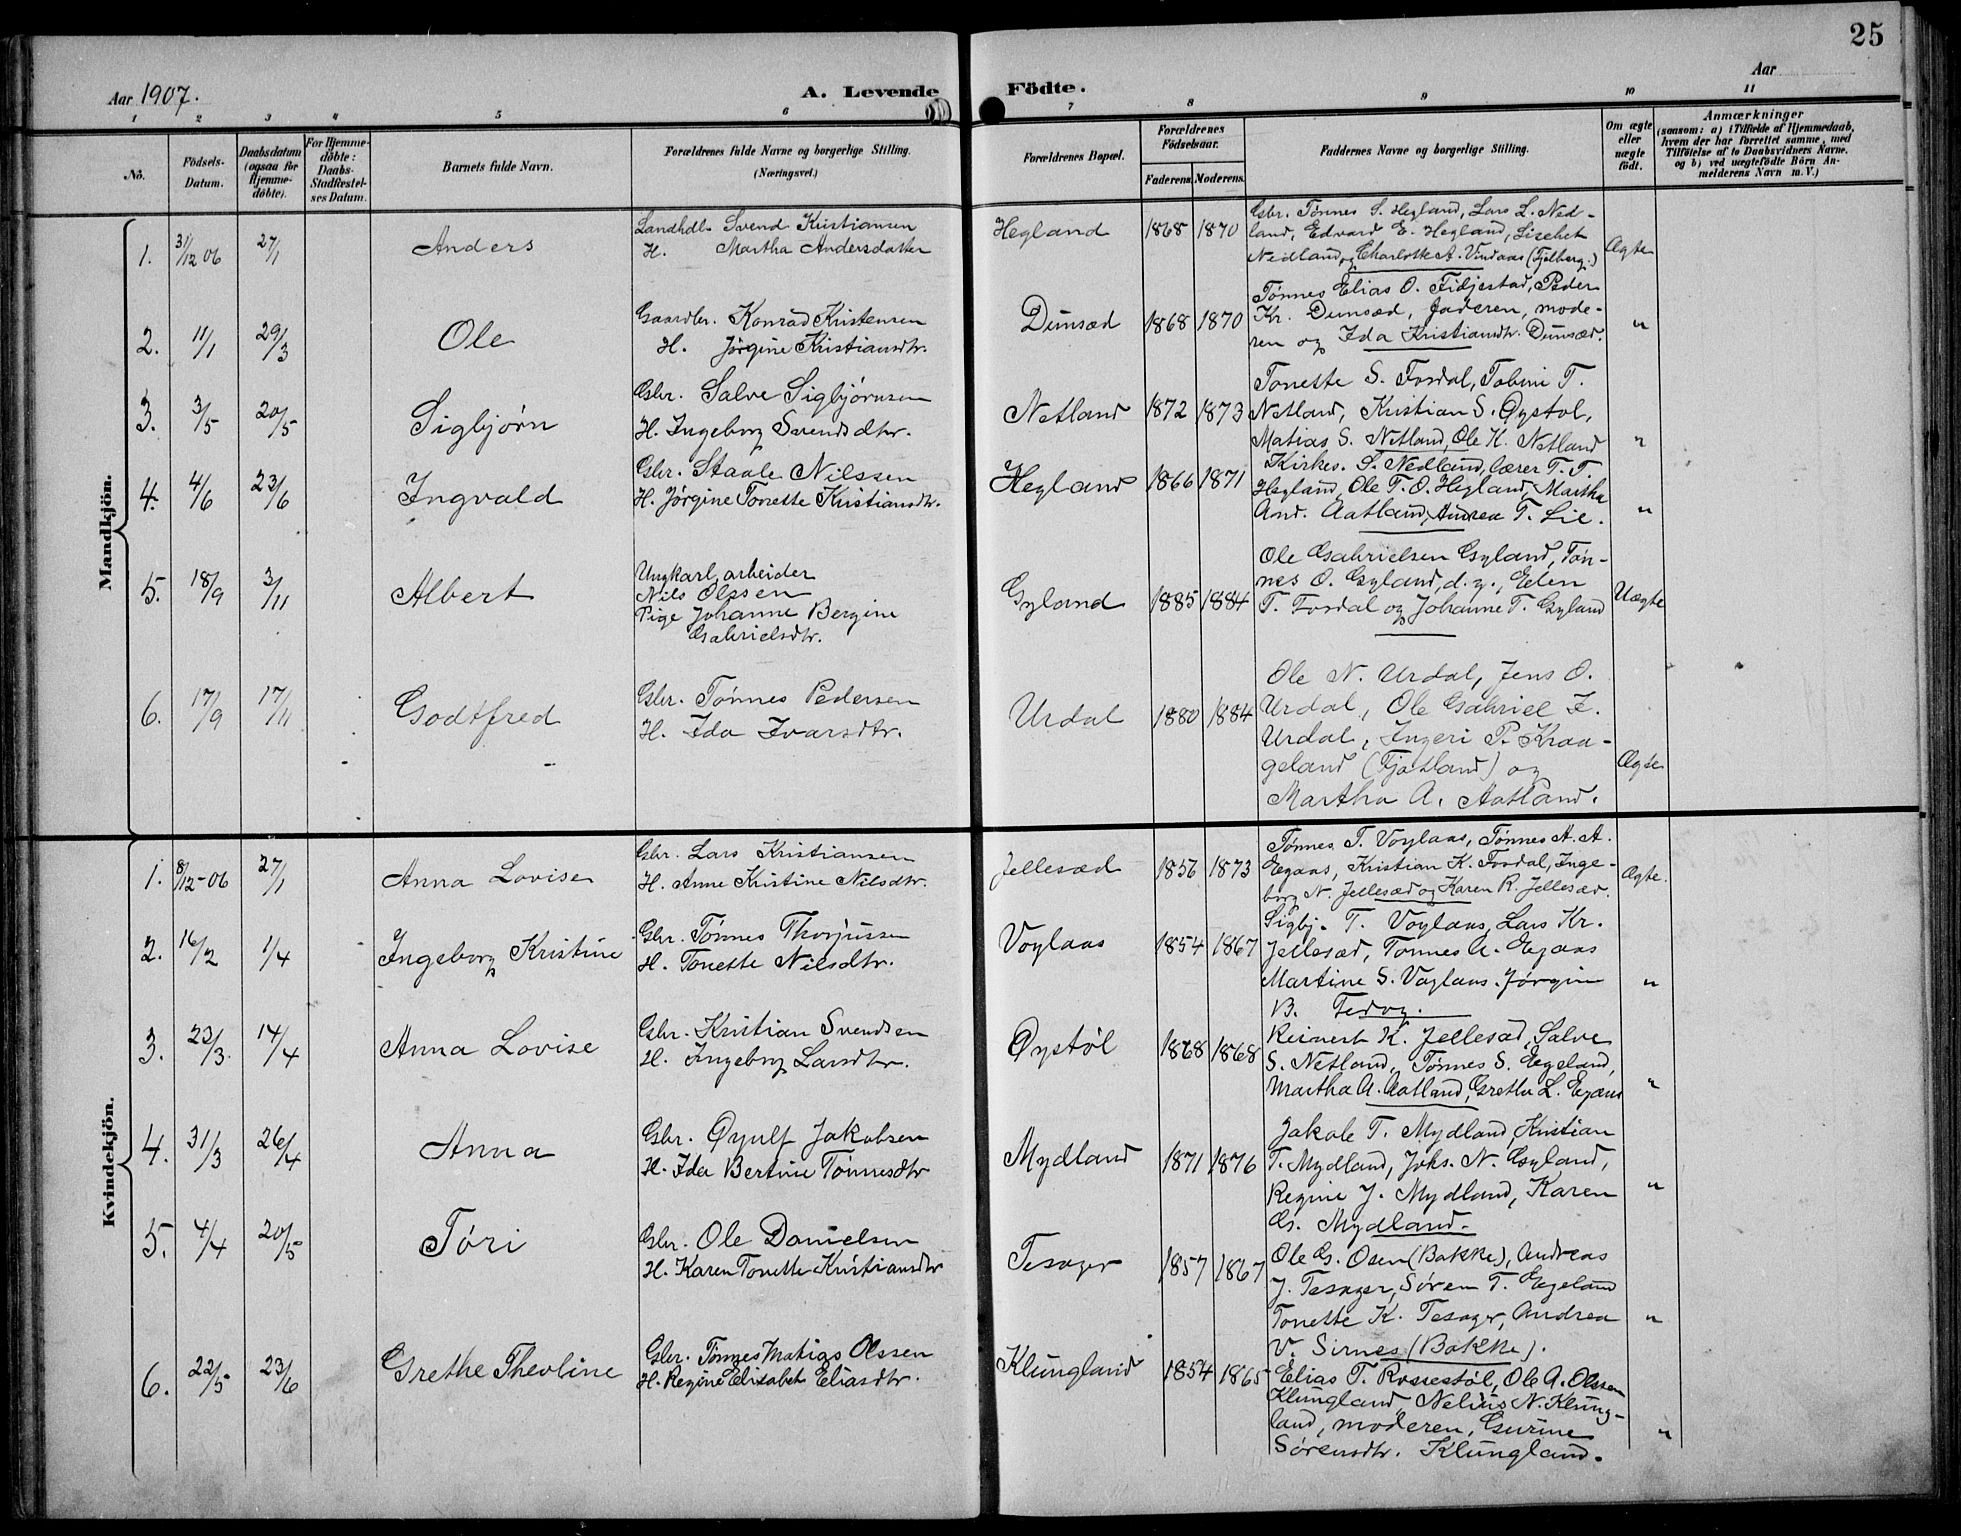 25
Aar 1907.
A. Levende Födte.
Aar
1 2 3 4 5 6 7 8 9 10 11
No.
Födsels-Datum.
Daabsdatum (ogsaa for Hjemme-döbte).
For Hjemme-döbte: Daabs-Stadfæstel-ses Datum.
Barnets fulde Navn.
Forældrenes fulde Navne og borgerlige Stilling.
(Næringsvei.)
Forældrenes Bopæl.
Forældrenes Födselsaar.
Faderens. Moderens.
Faddernes Navne og borgerlige Stilling.
Om ægte eller uægte födt.
Anmærkninger
(saasom: a) i Tilfælde af Hjemmedaab,
hvem der har forrettet samme, med
Tilföielse af to Daabsvidners Navne,
og b) ved uægtefödte Börn An-
melderens Navn m. V.)
Mandkjön.
1. 31/12 06 27/1 Anders
Landhdl. Svend Kristiansen
H. Martha Andersdatter
Hegland 1868 1870
Gbr. Tønnes S. Hegland, Lars L. Ned-
land, Edvard E. Hegland, Lisebet
Nedland, og Charlotte A. Vindaas (Fjelberg.)
Ægte
2. 11/1 29/3 Ole
Gaardbr. Konrad Kristensen
H. Jørgine Kristiansdtr.
Dunsæd 1868 1870
Tønnes Elias O. Fidjestad, Peder
Kr. Dunsæd, faderen, mode-
ren og Ida Kristiansdtr. Dunsæd.
"
3. 3/5 20/5 Sigbjørn
Gbr. Salve Sigbjørnsen
H. Ingeborg Svendsdtr.
Netland 1872 1873
Tonette S. Fosdal, Tobine T.
Netland, Kristian S. Øystøl,
Matias S. Netland, Ole K. Netland
"
4. 4/6 23/6 Ingvald
Gbr. Staale Nilssen
H. Jørgine Tonette Kristiansdtr.
Hegland 1866 1871
Kirkes. S. Nedland, lærer T. T.
Hegland, Ole T. O. Hegland, Martha
And. Aatland, Andrea T. Lie.
"
5. 18/9 3/11 Albert
Ungkarl, arbeider
Nils Olssen
Pige Johanne Bergine
Gabrielsdtr.
Gyland 1885 1884
Ole Gabrielsen Gyland, Tøn-
nes O. Gyland, d. y., Elen
T. Fosdal og Johanne T. Gyland
Uægte
6. 17/9 17/11 Godtfred
Gbr. Tønnes Pedersen
H. Ida Ivarsdtr.
Urdal 1880 1884
Ole N. Urdal, Jens O.
Urdal, Ole Gabriel I.
Urdal, Ingeri P. Kraa-
geland (Fjotland) og
Martha A. Aatland.
Ægte
Kvindekjön.
1. 8/12-06 27/1 Anna Lovise
Gbr. Lars Kristiansen
H. Anne Kristine Nilsdtr.
Jellesæd 1856 1873
Tønnes T. Voglaas, Tønnes A. A.
Egaas, Kristian K. Fosdal, Inge-
borg N. Jellesæd og Karen R. Jellesæd.
Ægte.
2. 16/2 1/4 Ingeborg Kristine
Gbr. Tønnes Thorjussen
H. Tonette Nilsdtr.
Voglaas 1854 1867
Sigbj. T. Voglaas, Lars Kr.
Jellesæd, Tønnes A. Egaas
Martine S. Voglaas. Jørgin
B. Tesog.
"
3. 23/3. 14/4 Anna Lovise
Gbr. Kristian Svendsen
H. Ingeborg Larsdtr.
Øystøl 1868 1868
Reinert K. Jellesæd, Salve
S. Netland, Tønnes S. Egeland,
Martha A. Aatland, Grethe L. Egaas
"
4. 31/3 26/4 Anna
Gbr. Øyulf Jakobsen
H. Ida Bertine Tønnesdtr
Mydland 1871 1876
Jakole T. Mydland, Kristian
T. Mydland, Johs. N. Gyland,
Regine J. Mydland, Karen
G. Mydland.
"
5. 4/4 20/5 Tøri
Gbr. Ole Danielsen
H. Karen Tonette Kristiansdtr
Tesager 1857 1867
Ole G. Osen (Bakke), Andreas
J. Tesager, Søren T. Egeland
Tonette K. Tesager, Andrea
V. Sirnes (Bakke).
"
6. 22/5 23/6 Grethe Theoline
Gbr. Tønnes Matias Olssen
H. Regine Elisabet Eliasdtr.
Klungland 1854 1865
Elias T. Rossestøl, Ole A. Olssen
Klungland, Nelius N. Klung-
land, moderen, Gurine
Sørensdtr. Klungland.
"